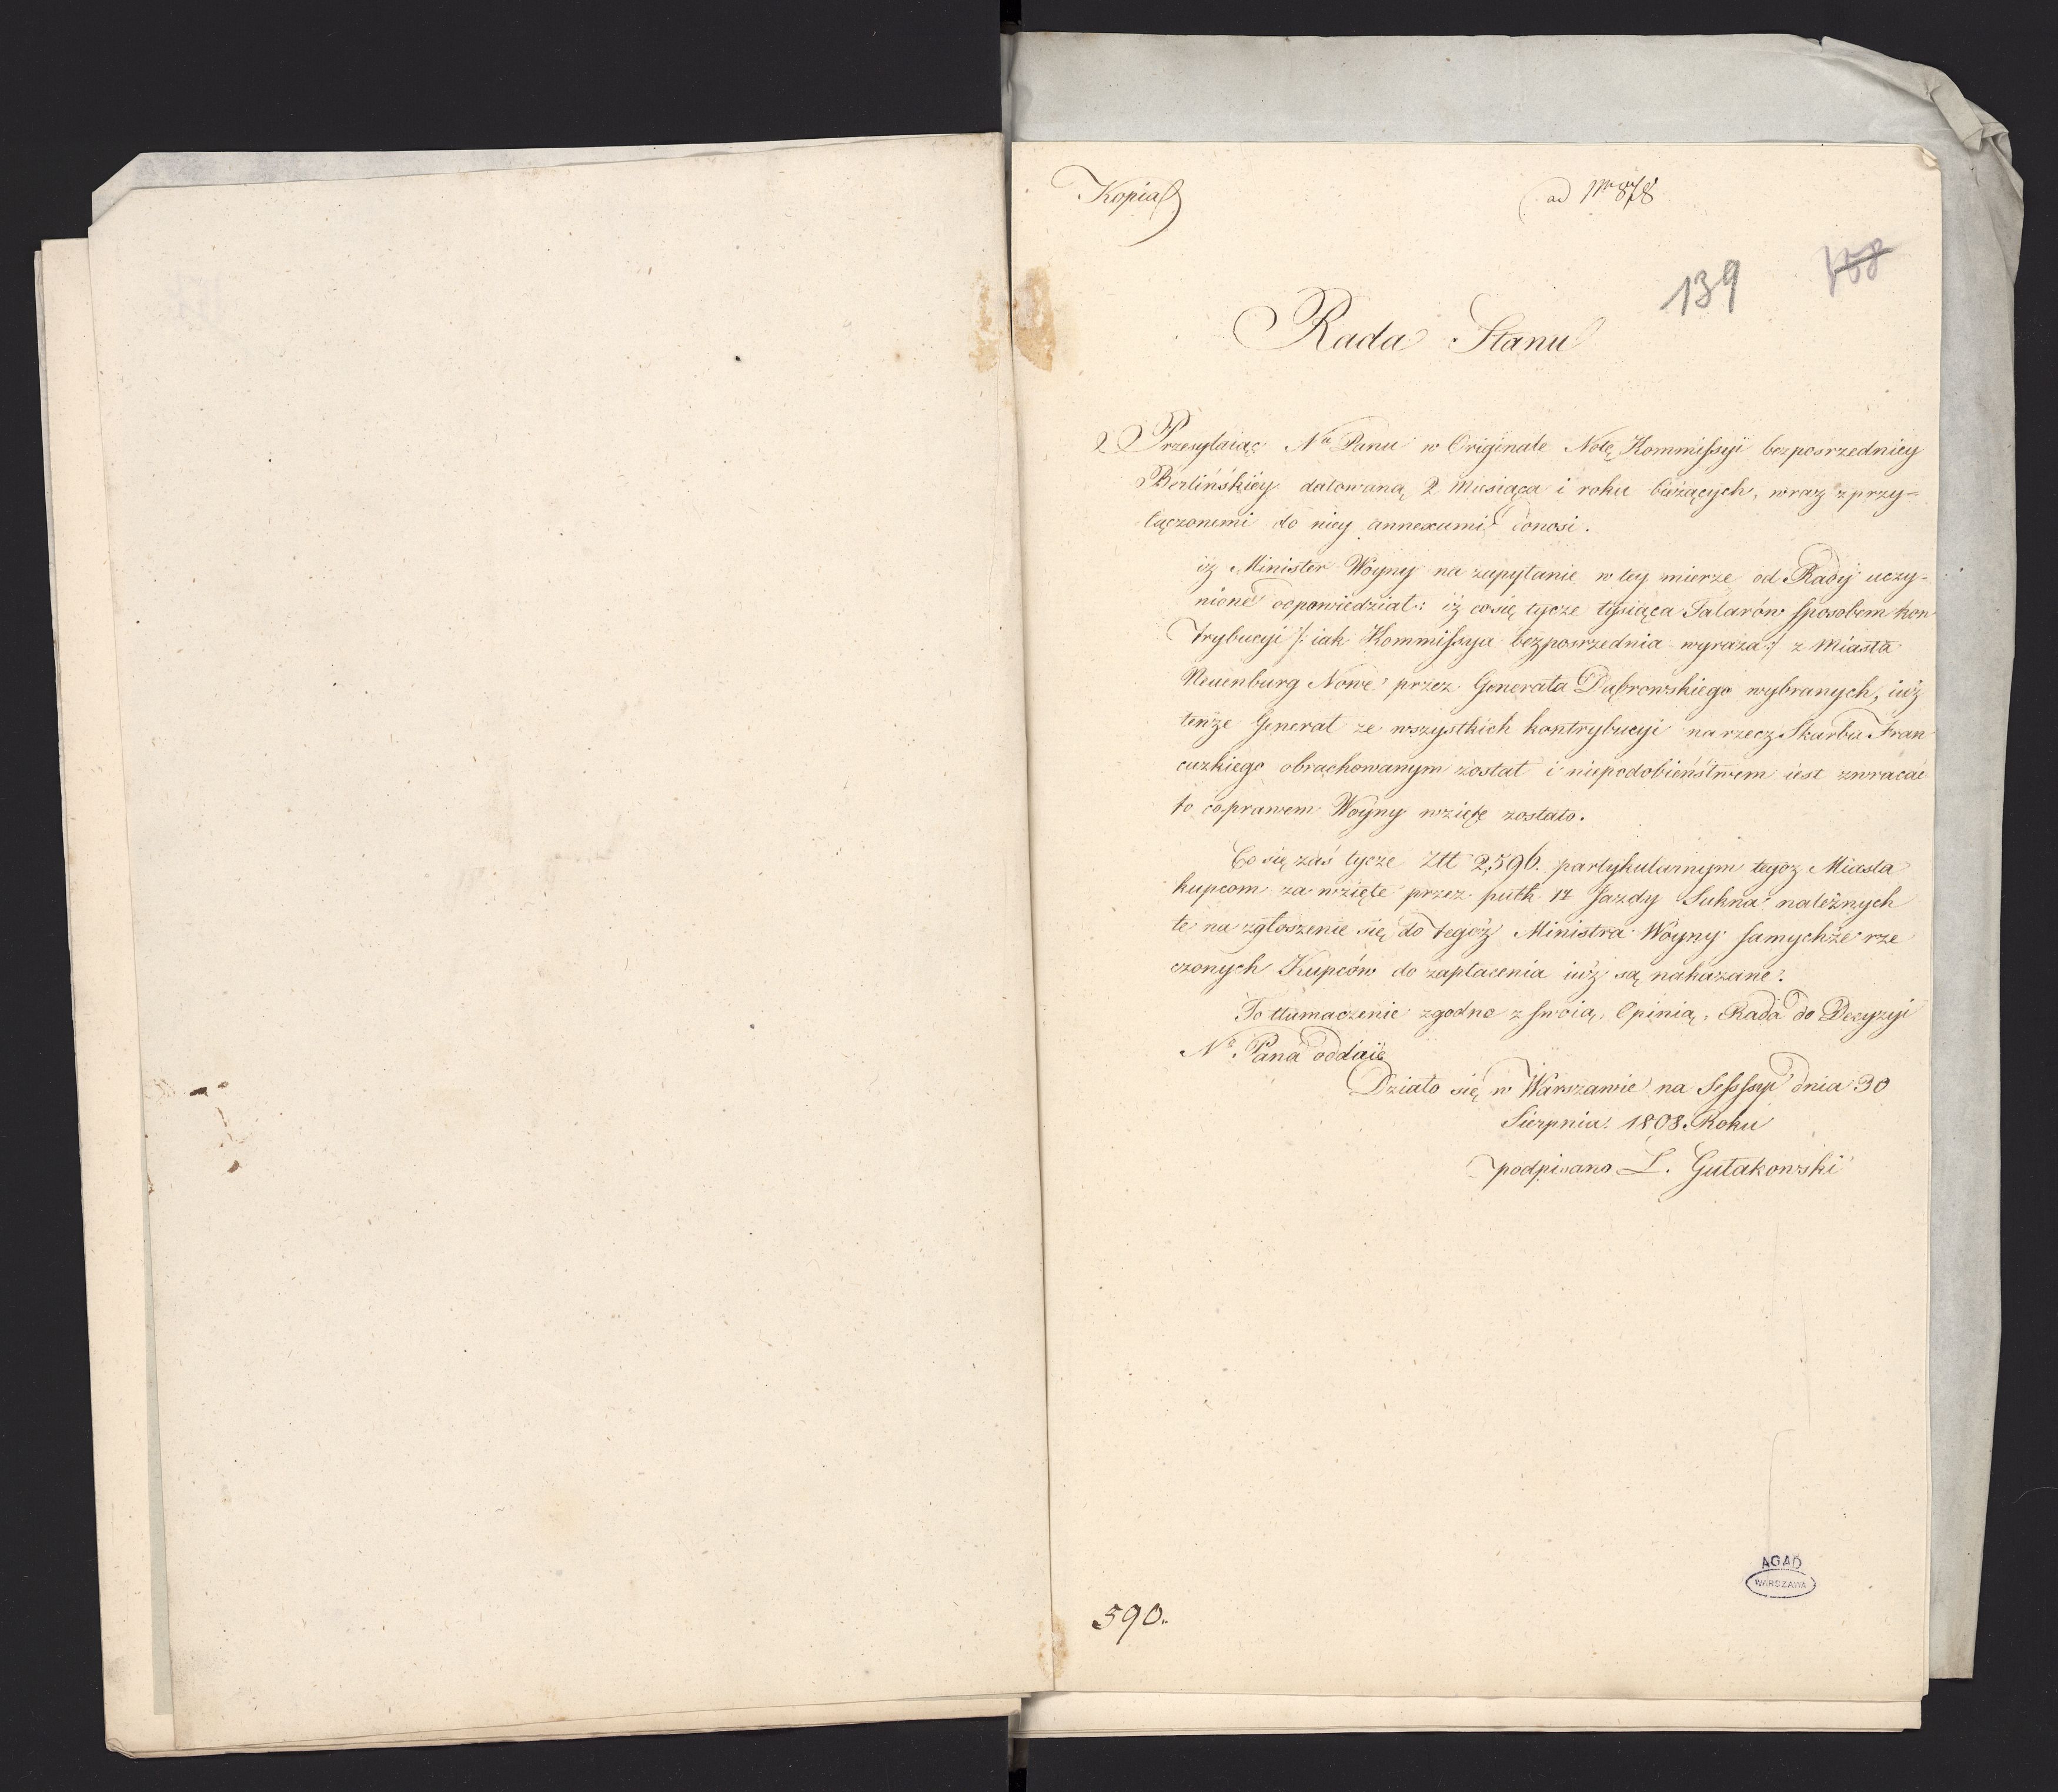 Kopia
ad Nrum 878
139
158
Rada Stanu
Przesyłaiąc Nu Panu w Originale Notę Kommissyi bezposrzedniey
Berlińskiey datowaną 2 Miesiąca i roku bieżących, wraz z przy=
łączonemi do niey annexami donosi.
iż Minister Woyny na zapytanie w tey mierze od Rady uczy=
nione odpowiedział: iż co się tycze tysiąca Talarów sposobem kon
trybucyi /: iak Kommissya bezposrzednia wyraża :/ z Miasta
Neuenburg Nowe przez Generała Dąbrowskiego wybranych, iuż
tenże Generał ze wszystkich kontrybucyi na rzecz Skarbu Fran
cuzkiego obrachowanym został i niepodobieństwem iest zwracać
to co prawem Woyny wzięte zostało.
Co się zaś tycze Złł 2,596. partykularnym tegoż Miasta
kupcom za wzięte przez pułk Jazdy Sukna należnych
te na zgłoszenie się do tegoż Ministra Woyny samychże rze
czonych Kupców do zapłacenia iuż są nakazane.
To tłumaczenie zgodne z swoią Opinią, Rada do Decyzyi
No. Pana oddaie
Działo się w Warszawie na Sesssyi dnia 30
Sierpnia 1808. Roku
podpisano L. Gutakowski
AGAD
WARSZAWA
590.